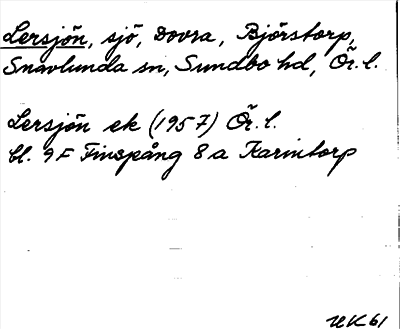 Lersjön, sjö, Dovra, Björstorp,
Snavlunda sn, Sundbo hd, Ör. l.
Lersjön ek (1957) Ör. l.
bl. 9F Finspång 8a Karintorp
UK 61